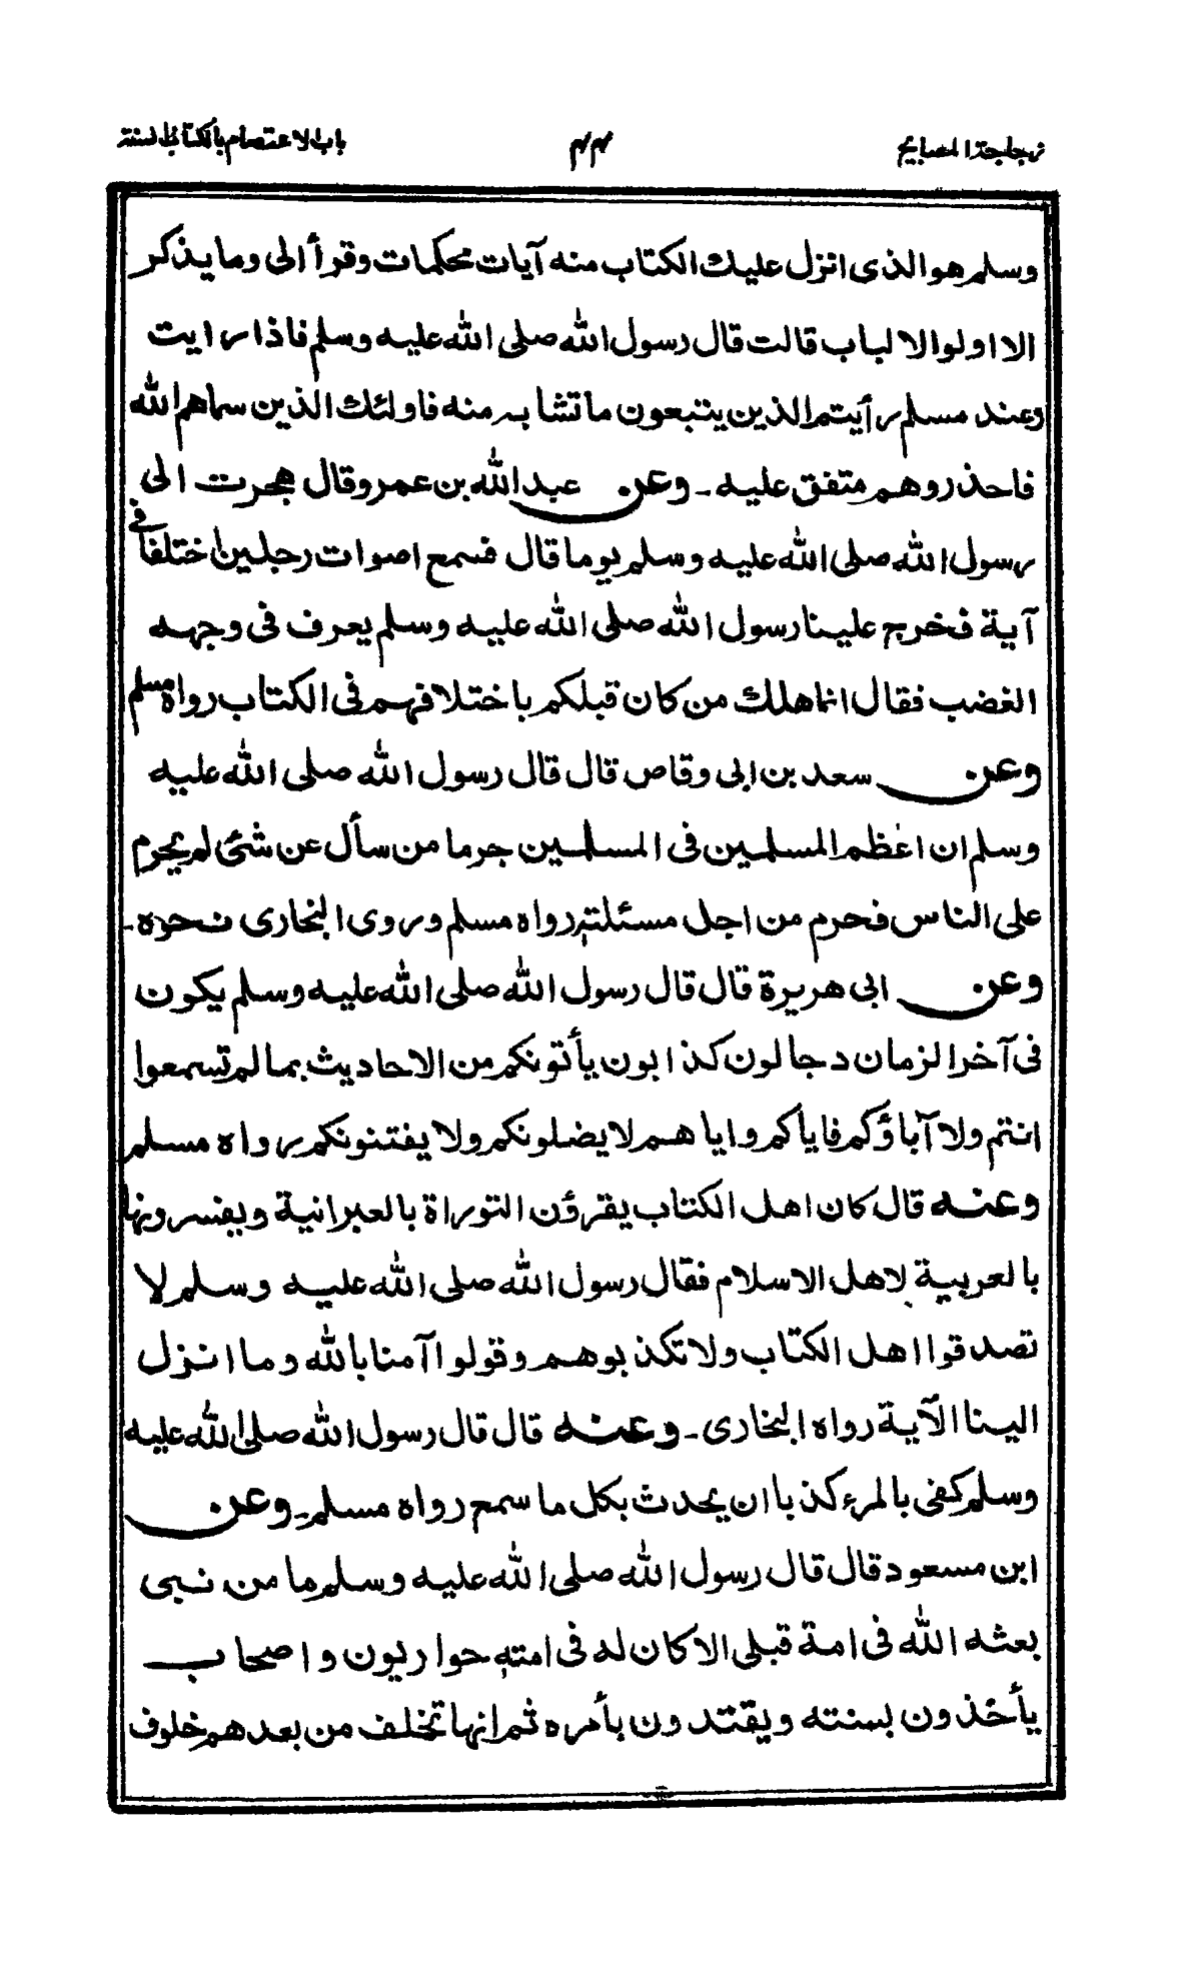 زجاجة المصابيح
٤٤
باب الاعتصام بالكتاب والسنة
وسلم هو الذى انزل عليك الكتاب منه آيات محكمات وقرأ الى وما يذكر
الا اولوا الالباب قالت قال رسول الله صلى الله عليه وسلم فاذا رايت
وعند مسلم رأيتم الذين يتبعون ما تشابه منه فاولئك الذين سماهم الله
فاحذروهم متفق عليه ـ وعن عبد الله بن عمرو قال هجرت الى
رسول الله صلى الله عليه وسلم يوما قال فسمع اصوات رجلين اختلفا فى
آية فخرج علينا رسول الله صلى الله عليه وسلم يعرف فى وجهه
الغضب فقال انما هلك من كان قبلكم باختلافهم فى الكتاب رواه مسلم
وعن سعد بن ابى وقاص قال قال رسول الله صلى الله عليه
وسلم ان اعظم المسلمين فى المسلمين جرما من سأل عن شئ لم يحرم
على الناس فحرم من اجل مسئلته رواه مسلم وروى البخارى نحوه ـ
وعن ابى هريرة قال قال رسول الله صلى الله عليه وسلم يكون
فى آخر الزمان دجالون كذابون يأتونكم من الاحاديث بما لم تسمعوا
انتم ولا آباؤكم فاياكم واياهم لا يضلونكم ولا يفتنونكم رواه مسلم
وعنه قال كان اهل الكتاب يقرؤن التوراة بالعبرانية ويفسرونها
بالعربية لاهل الاسلام فقال رسول الله صلى الله عليه وسلم لا
تصدقوا اهل الكتاب ولا تكذبوهم وقولوا آمنا بالله وما انزل
الينا الآية رواه البخارى ـ وعنه قال قال رسول الله صلى الله عليه
وسلم كفى بالمرء كذبا ان يحدث بكل ما سمع رواه مسلم ـ وعن
ابن مسعود قال قال رسول الله صلى الله عليه وسلم ما من نبى
بعثه الله فى امة قبلى الا كان له فى امته حواريون واصحاب
يأخذون بسنته ويقتدون بأمره ثم انها تخلف من بعدهم خلوف